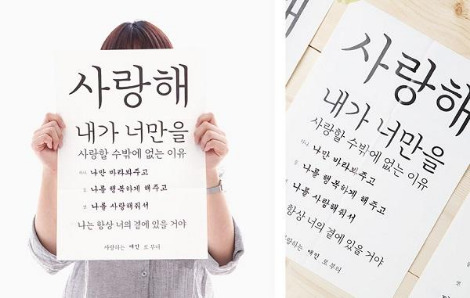 사랑해
내가 너만을
사랑할 수밖에 없는 이유
나만 바라봐주고
나를 행복하게 해주고
나를 사랑해줘서
나는 항상 너의 곁에 있을 거야
사랑하는 애인 로부터
사랑해
내가 너만을
사랑할 수밖에 없는 이유
나만 바라봐주고
나를 행복하게 해주고
나를 사랑해줘서
항상 너의 곁에 있을 거야
사랑하는 애인 로부터